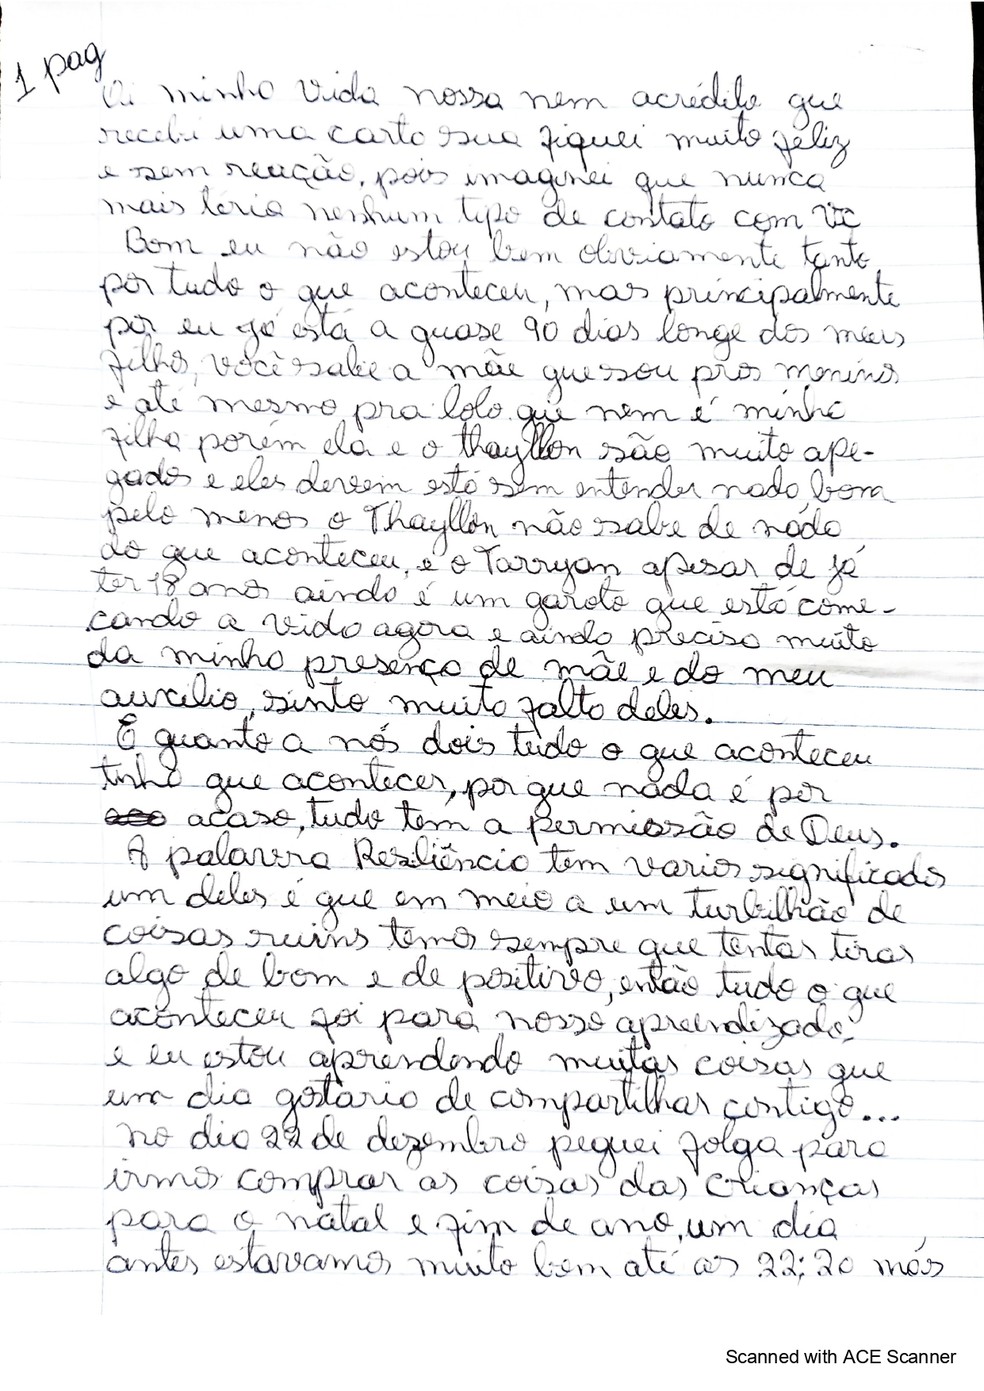 1 pag
Oi minha vida nossa nem acredito que
recebi uma carta sua fiquei muito feliz
e sem reação, pois imaginei que nunca
mais teria nenhum tipo de contato com vc
Bom eu não estou bem obviamente tanto
por tudo o que aconteceu, mas principalmente
por eu já está a quase 90 dias longe dos meus
filhos, você sabe a mãe que sou pros meninos
e até mesmo pra lolo que nem é minha
filha porém ela e o Thayllon são muito ape-
gados e eles devem está sem entender nada bom
pelo menos o Thayllon não sabe de nada
do que aconteceu, e o Tarryan apesar de já
ter 18 anos ainda é um garoto que está come-
cando a vida agora e ainda precisa muito
da minha presença de mãe e do meu
auxilio, sinto muito falta deles.
E quanto a nós dois tudo o que aconteceu
tinha que acontecer, por que nada é por
acaso, tudo tem a permissão de Deus.
A palavra Resiliência tem varios significados
um deles é que em meio a um turbilhão de
coisas ruins temos sempre que tentar tirar
algo de bom e de positivo, então tudo o que
aconteceu foi para nosso aprendizado,
e eu estou aprendendo muitas coisas que
um dia gostaria de compartilhar contigo...
no dia 22 de dezembro peguei folga para
irmos comprar as coisas das crianças
para o natal e fim de ano, um dia
antes estavamos muito bem até as 22:20 nós
Scanned with ACE Scanner